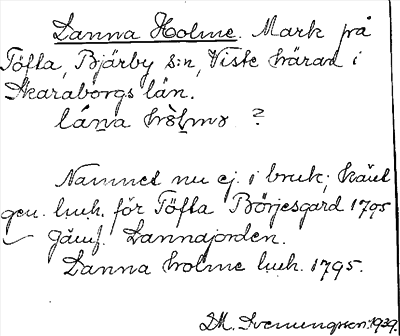 Lanna Holme. Mark på
Töfta, Bjärby s:n, Viste härad i
Skaraborgs län.
lána hòlmə ?
Namnet nu ej i bruk; känt
gen. luh. för Töfta Börjesgård 1795
Jämf. Lannajorden.
Lanna holme luh. 1795.
M. Svenungsson. 1929.